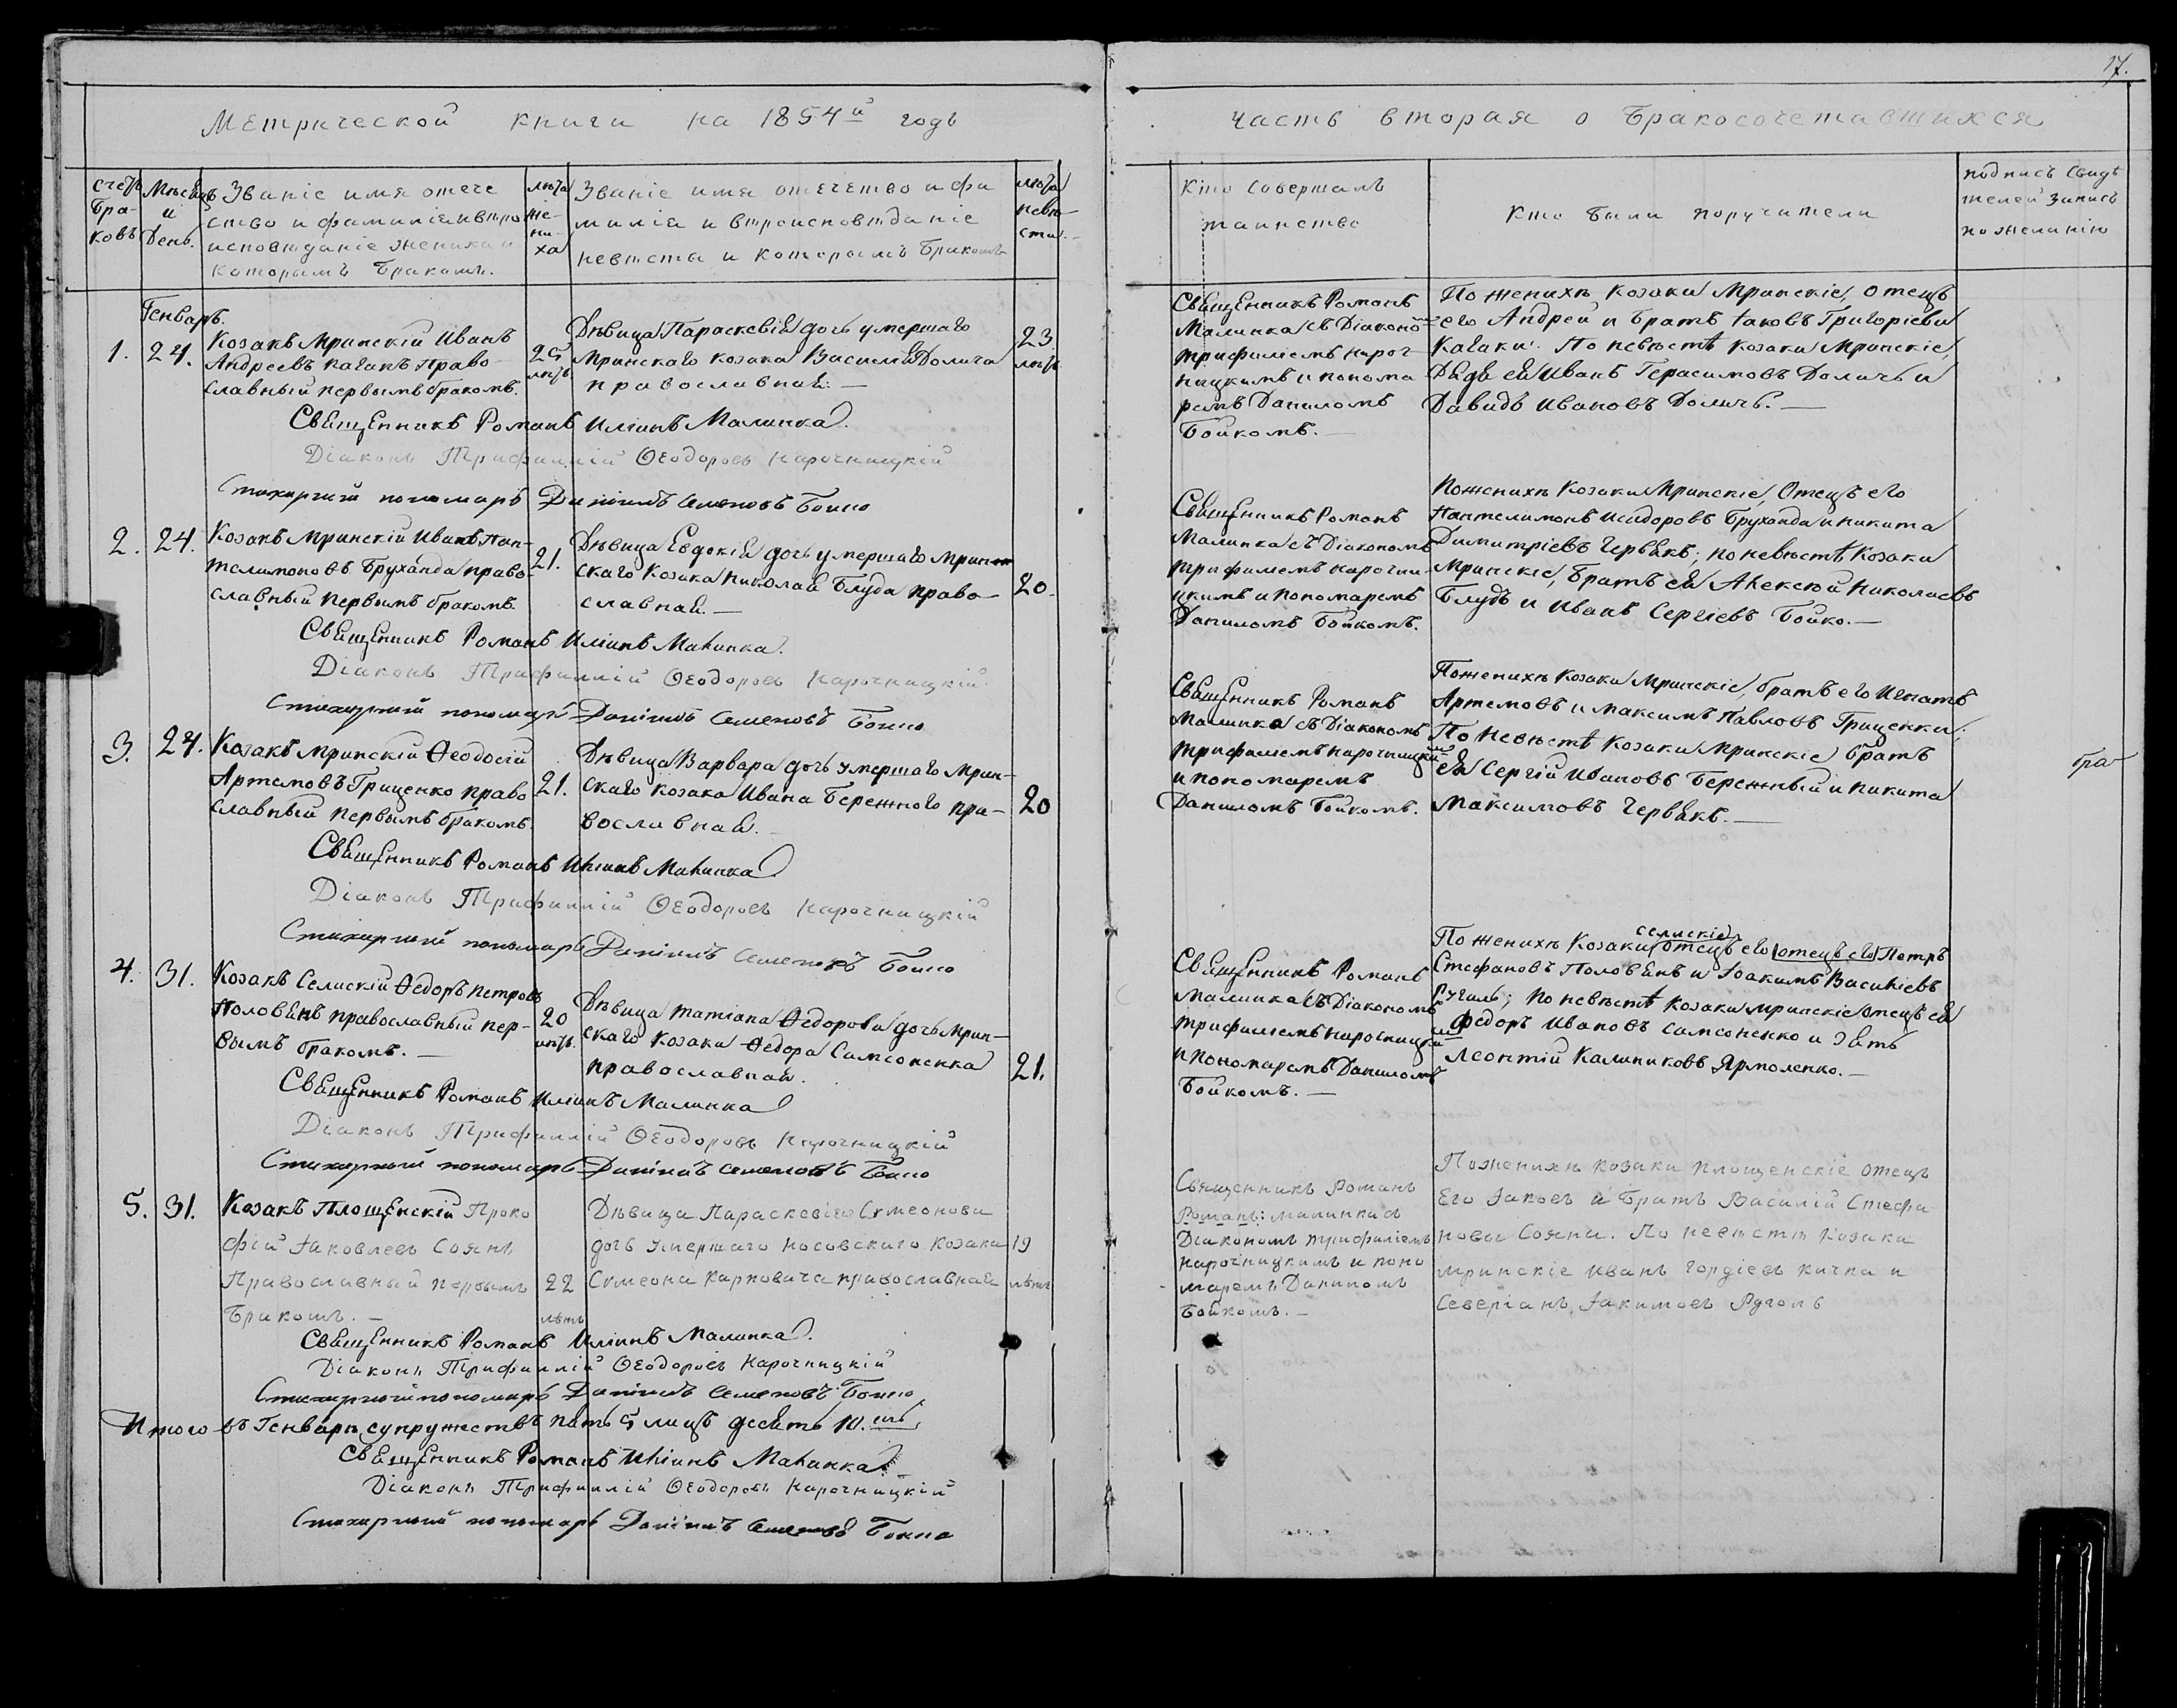 17.
Метрической книги на 1854й годъ
часть вторая о бракосочетавшихся
счетъ бра-ковъ
Мѣсяцъ и День.
Званіе имя отече
ство и фамилія и вѣро
исповѣданіе жениха и
которымъ бракомъ.
лѣта же-ни-ха
Званіе имя отечество и фа
милія и вѣроисповѣданіе
невѣсты и которымъ бракомъ
лѣта невѣ-сты.
Кто совершалъ
таинство
Кто были поручители
подпись свидѣ
телей запись
по желанію
Генварь.
1. 24.
Козакъ Мринскій Иванъ
Андреевъ Кагакъ Право-
славный первымъ бракомъ.
25 лѣтъ
Дѣвица Параскевія дочь умершаго
Мринскаго козака Василія Долича
православная. —
23 лѣтъ
Священникъ Романъ
Малинка съ Діакономъ
Трифиліемъ Нароч-
ницкимъ и понома
ремъ Даниломъ
Бойкомъ. —
По женихѣ Козаки Мринскіе, отецъ
его Андрей и братъ Іаковъ Григоріевы
Кагаки. По невѣстѣ козаки Мринскіе,
Дядя ея Иванъ Герасимовъ Доличъ и
Давидъ Ивановъ Доличъ. —
Священникъ Романъ Иліинъ Малинка.
Діаконъ Трифиллій Ѳеодоровъ Нарочницкій
Стихарный пономарь Даніилъ Семеновъ Бойко
2. 24.
Козакъ Мринскій Иванъ Пан-
телимоновъ Бруханда право-
славный первымъ бракомъ.
21.
Дѣвица Евдокія дочь умершаго Мрин-
скаго Козака Николая Блуда право-
славная. —
20.
Священникъ Романъ
Малинка съ Діакономъ
Трифилемъ Нарочни-
цкимъ и пономаремъ
Даниломъ Бойкомъ.
По женихѣ Козаки Мринскіе, Отецъ его
Пантелимонъ Исидоровъ Бруханда и Никита
Димитріевъ Червякъ; по невѣстѣ Козаки
Мринскіе, братъ ея Алексѣй Николаевъ
Блудъ и Иванъ Сергіевъ Бойко. —
Священникъ Романъ Иліинъ Малинка.
Діаконъ Трифиллій Ѳеодоровъ Нарочницкій
Стихарный пономарь Даніилъ Семеновъ Бойко
3. 24.
Козакъ Мринскій Ѳеодосій
Артемовъ Гриценко право
славный первымъ бракомъ.
21.
Дѣвица Варвара дочь умершаго Мрин-
скаго козака Ивана Бережного пра-
вославная. —
20
Священникъ Романъ
Малинка съ Діакономъ
Трифилемъ Нарочницкимъ
и пономаремъ
Даниломъ Бойкомъ.
По женихѣ Козаки Мринскіе, братъ его Игнатъ
Артемовъ и Максимъ Павловъ Гриценки;
По Невѣстѣ Козаки Мринскіе братъ
ея Сергій Ивановъ Бережный и Никита
Максимовъ Червякъ. —
бра
Священникъ Романъ Иліинъ Малинка
Діаконъ Трифиллій Ѳеодоровъ Нарочницкій
Стихарный пономарь Даніилъ Семеновъ Бойко
4. 31.
Козакъ Селискій Ѳедоръ Петровъ
Половянъ православный пер-
вымъ бракомъ. —
20 лѣтъ.
Дѣвица Татіана Ѳедорова дочь Мрин-
скаго Козака Ѳедора Самсоненка
православная.
21.
Священникъ Романъ
Малинка съ Діакономъ
Трифилемъ Нарочницкимъ
и пономаремъ Даниломъ
Бойкомъ. —
селискіе
По женихѣ Козаки отецъ его (отецъ его) Петръ
Стефановъ Половянъ и Іоакимъ Василіевъ
Ручаль; По невѣстѣ козаки Мринскіе отецъ ея
Федоръ Ивановъ Самсоненко и Зять
Леонтій Калиниковъ Ярмоленко. —
Священникъ Романъ Иліинъ Малинка
Діаконъ Трифиллій Ѳеодоровъ Нарочницкій
Стихарный пономарь Даніилъ Семеновъ Бойко
5. 31.
Козакъ Площенскій Проко
фій Іаковлевъ Соянъ
Православный первымъ
бракомъ. —
22 лѣтъ
Дѣвица Параскевія Сѵмеонова
дочь умершаго Носовскаго козака
Сѵмеона Карповича православная
19 лѣтъ
Священникъ Романъ
Романъ: Малинка съ
Діакономъ Трифиліемъ
Нарочницкимъ и поно
маремъ Даниломъ
Бойкомъ. —
По женихѣ козаки площенскіе отецъ
Его Іаковъ и братъ Василій Стефа
новы Сояны. По невѣстѣ Козаки
мринскіе Иванъ Гордіевъ Кичка и
Северіанъ Іакимовъ Ручоль
Священникъ Романъ Иліинъ Малинка.
Діаконъ Трифиллій Ѳеодоровъ Нарочницкій
Стихарный пономарь Даніилъ Семеновъ Бойко
Итого въ Генварѣ супружествъ пять 5 лицъ десять 10.
Священникъ Романъ Иліинъ Малинка.
Діаконъ Трифиллій Ѳеодоровъ Нарочницкій
Стихарный пономарь Даніилъ Семеновъ Бойко